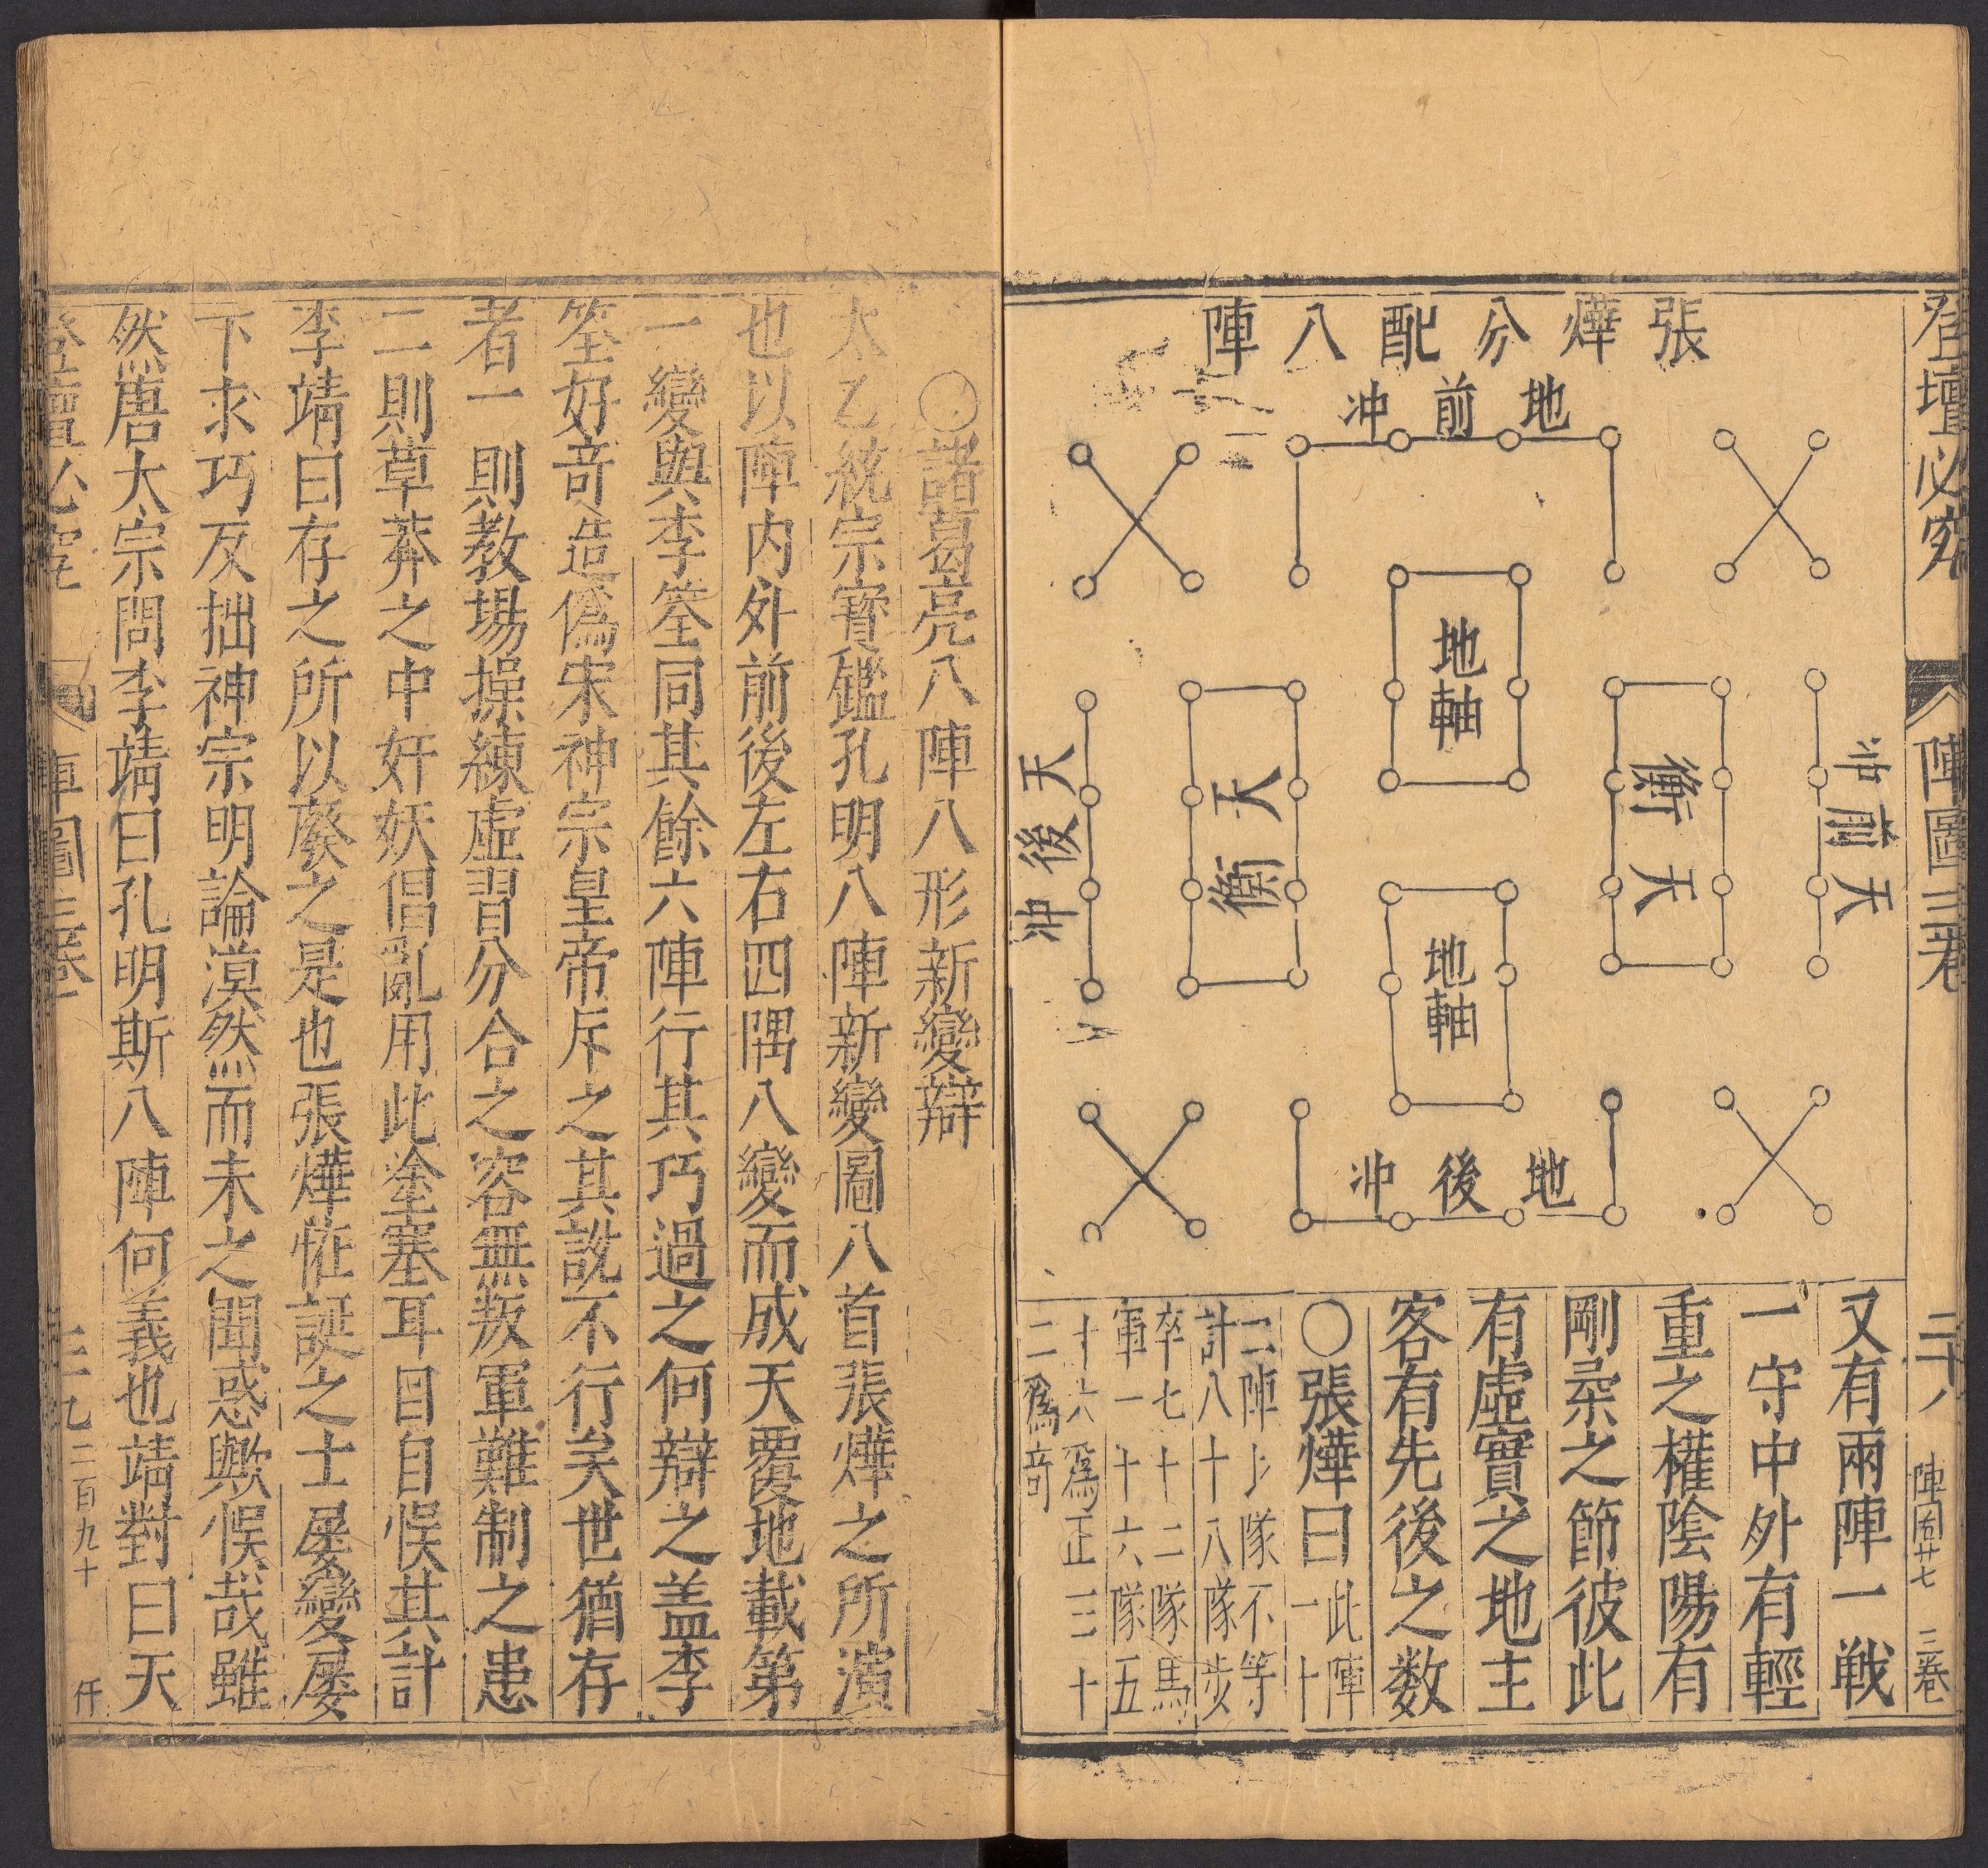 登壇必究
陣圖三卷
二十八
陣圖廿七
三卷
張燁分配八陣
地前冲
天前冲
天衡
地軸
地軸
天衡
天後冲
地後冲
又有兩陣一戦
一守中外有輕
重之權陰陽有
剛柔之節彼此
有虛實之地主
客有先後之数
〇張燁曰此陣
一十
二陣上隊不等
計八十八隊步
卒七十二隊馬
軍一十六隊五
十六爲正三十
二爲奇
〇諸葛亮八陣八形新變辯
太乙統宗寳鑑孔明八陣新變圖八首張燁之所演
也以陣内外前後左右四隅八變而成天覆地載第
一變與李筌同其餘六陣行其巧過之何辯之盖李
筌好奇造僞宋神宗皇帝斥之其說不行矣世猶存
者一則教場操練虛習分合之容無叛軍難制之患
二則草莽之中奸妖倡亂用此塗塞耳目自悮其計
李靖曰存之所以廢之是也張燁恠誕之士屢變屢
下求巧反拙神宗明論漠然而未之聞惑歟悮哉雖
然唐太宗問李靖曰孔明斯八陣何義也靖對曰天
登壇必究
陣圖三卷
二九
二百九十
仟